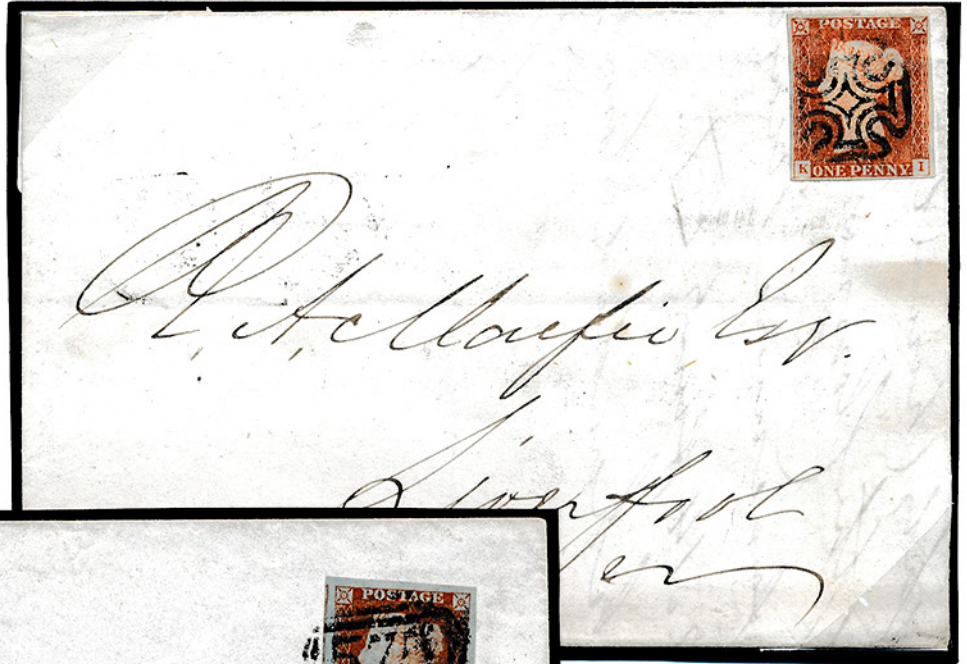 POSTAGE
K ONE PENNY I
R. A. Macfie Esq.
Liverpool
POSTAGE